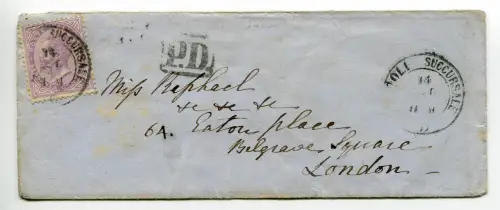 SUCCURSALE
14
P.D.
OLI SUCCURSALE
14
Miss Raphael
&c &c &c
6A. Eaton place
Belgrave Square
London